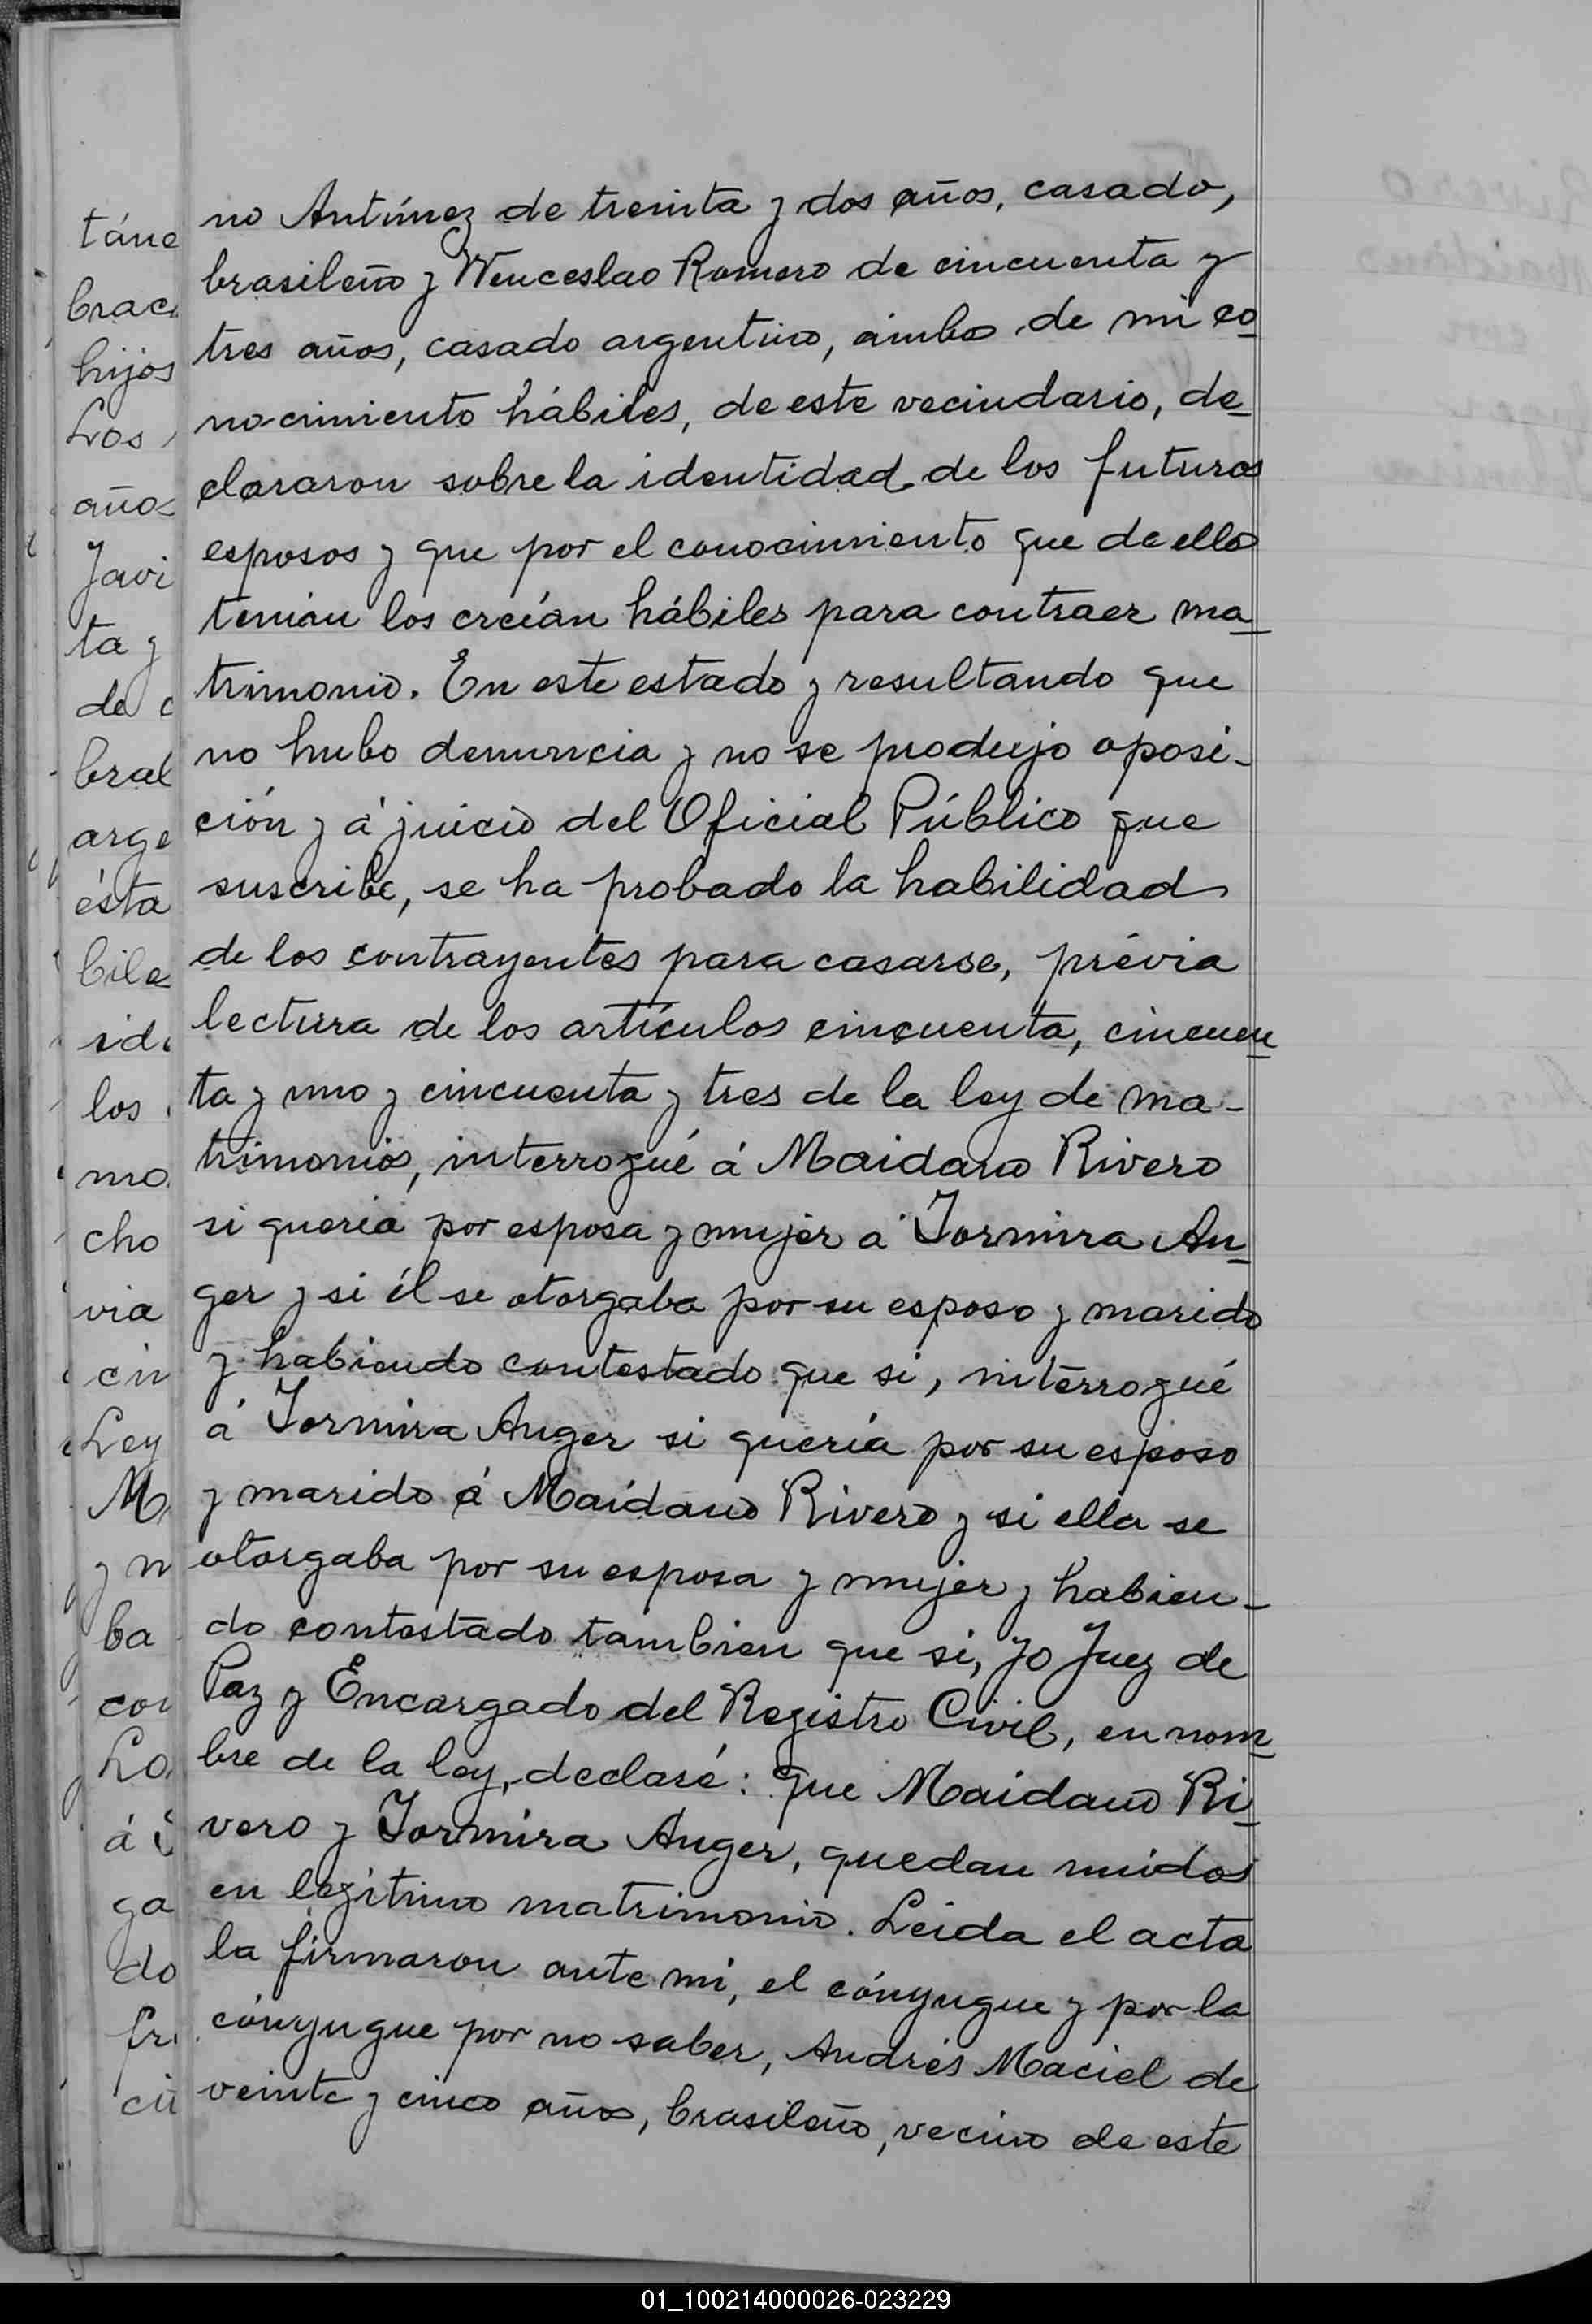 no Antúnez de treinta y dos años, casado,
brasileño y Wenceslao Romero de cincuenta y
tres años, casado argentino, ámbos de mi co
nocimiento hábiles, de este vecindario, de
clararon sobre la identidad de los futuros
esposos y que por el conocimiento que de ellos
tenían los creían hábiles para contraer ma
trimonio. En este estado y resultando que
no hubo denuncia y no se produjo oposi-
ción y á juicio del Oficial Público que
suscribe, se ha probado la habilidad
de los contrayentes para casarse, prévia
lectura de los artículos cincuenta, cincuen
ta y uno y cincuenta y tres de la ley de ma-
trimonios, interrogué á Maidano Rivero
si quería por esposa y mujer a Jormira An
ger y si él se otorgaba por su esposo y marido
y habiendo contestado que si, interrogué
á Jormira Anger si quería por su esposo
y marido á Maidano Rivero y si ella se
otorgaba por su esposa y mujer y habien-
do contestado tambien que si, yo Juez de
Paz y Encargado del Registro Civil, en nom
bre de la ley, declaré: que Maidano Ri
vero y Jormira Anger, quedan unidos
en legítimo matrimonio. Leida el acta
la firmaron ante mi, el cónyugue y por la
cónyugue por no saber, Andrés Maciel de
veinte y cinco años, brasileño, vecino de este
táne
brac
hijos
Los
años
Javi
ta y
de c
bral
arge
ésta
bile
sid
los
mo
cho
via
cin
Ley
M
y m
ba
con
Lo
á
ga
do
fir
ciu
Rivero
Maidano
con
01_100214000026-023229